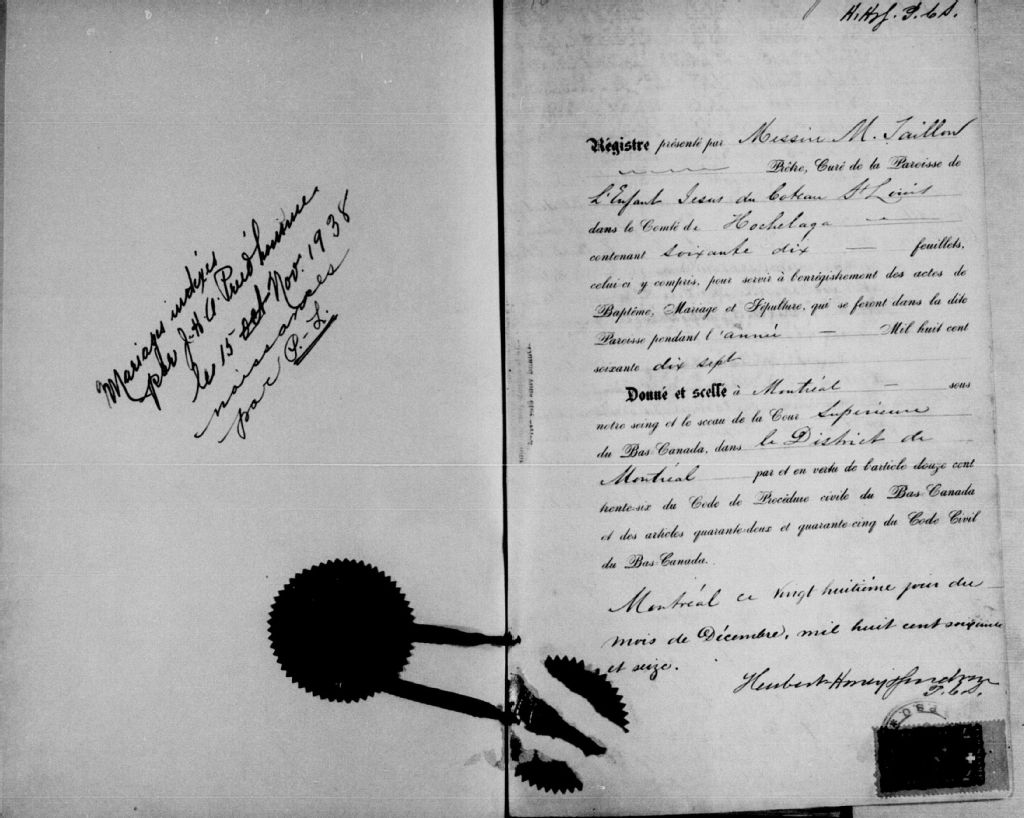 Mariages indexés
par J. H. A. Prud'homme
le 15 oct Nov. 1938
naissances
par P.-L.
H. Hof. P.C.S.
Régistre présenté par Messire M. Taillon
Prêtre, Curé de la Paroisse de
L'Enfant Jesus du Coteau St Louis
dans le Comté de Hochelaga
contenant soixante dix feuillets,
celui-ci y compris, pour servir à l'enrégistrement des actes de
Baptême, Mariage et Sépulture, qui se feront dans la dite
Paroisse pendant l'année Mil huit cent
soixante dix sept
Donné et scellé à Montréal sous
notre seing et le sceau de la Cour Supérieure
du Bas-Canada, dans le District de
Montréal par et en vertu de l'article douze cent
trente-six du Code de Procédure civile du Bas-Canada
et des articles quarante-deux et quarante-cinq du Code Civil
du Bas-Canada.
Montréal ce vingt huitième jour du
mois de Décembre, mil huit cent soixante
et seize.
P.C.S.